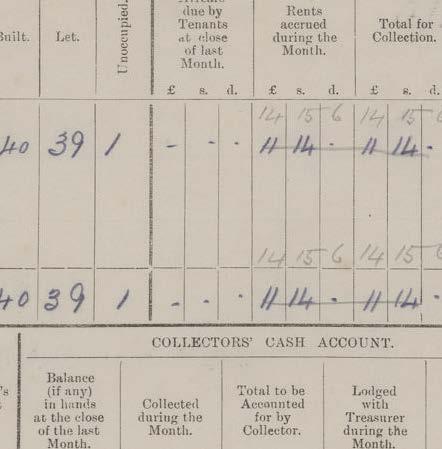 Built. Let. Unoccupied. due by Tenants at close of last Month. Rents accrued during the Month. Total for Collection.
£ s. d. £ s. d. £ s. d.
14 15 6 14 15 6
40 39 1 - . . 11 14 . 11 14 .
14 15 6 14 15 6
40 39 1 - . . 11 14 . 11 14 .
COLLECTORS' CASH ACCOUNT.
Balance (if any) in hands at the close of the last Month. Collected during the Month. Total to be Accounted for by Collector. Lodged with Treasurer during the Month.